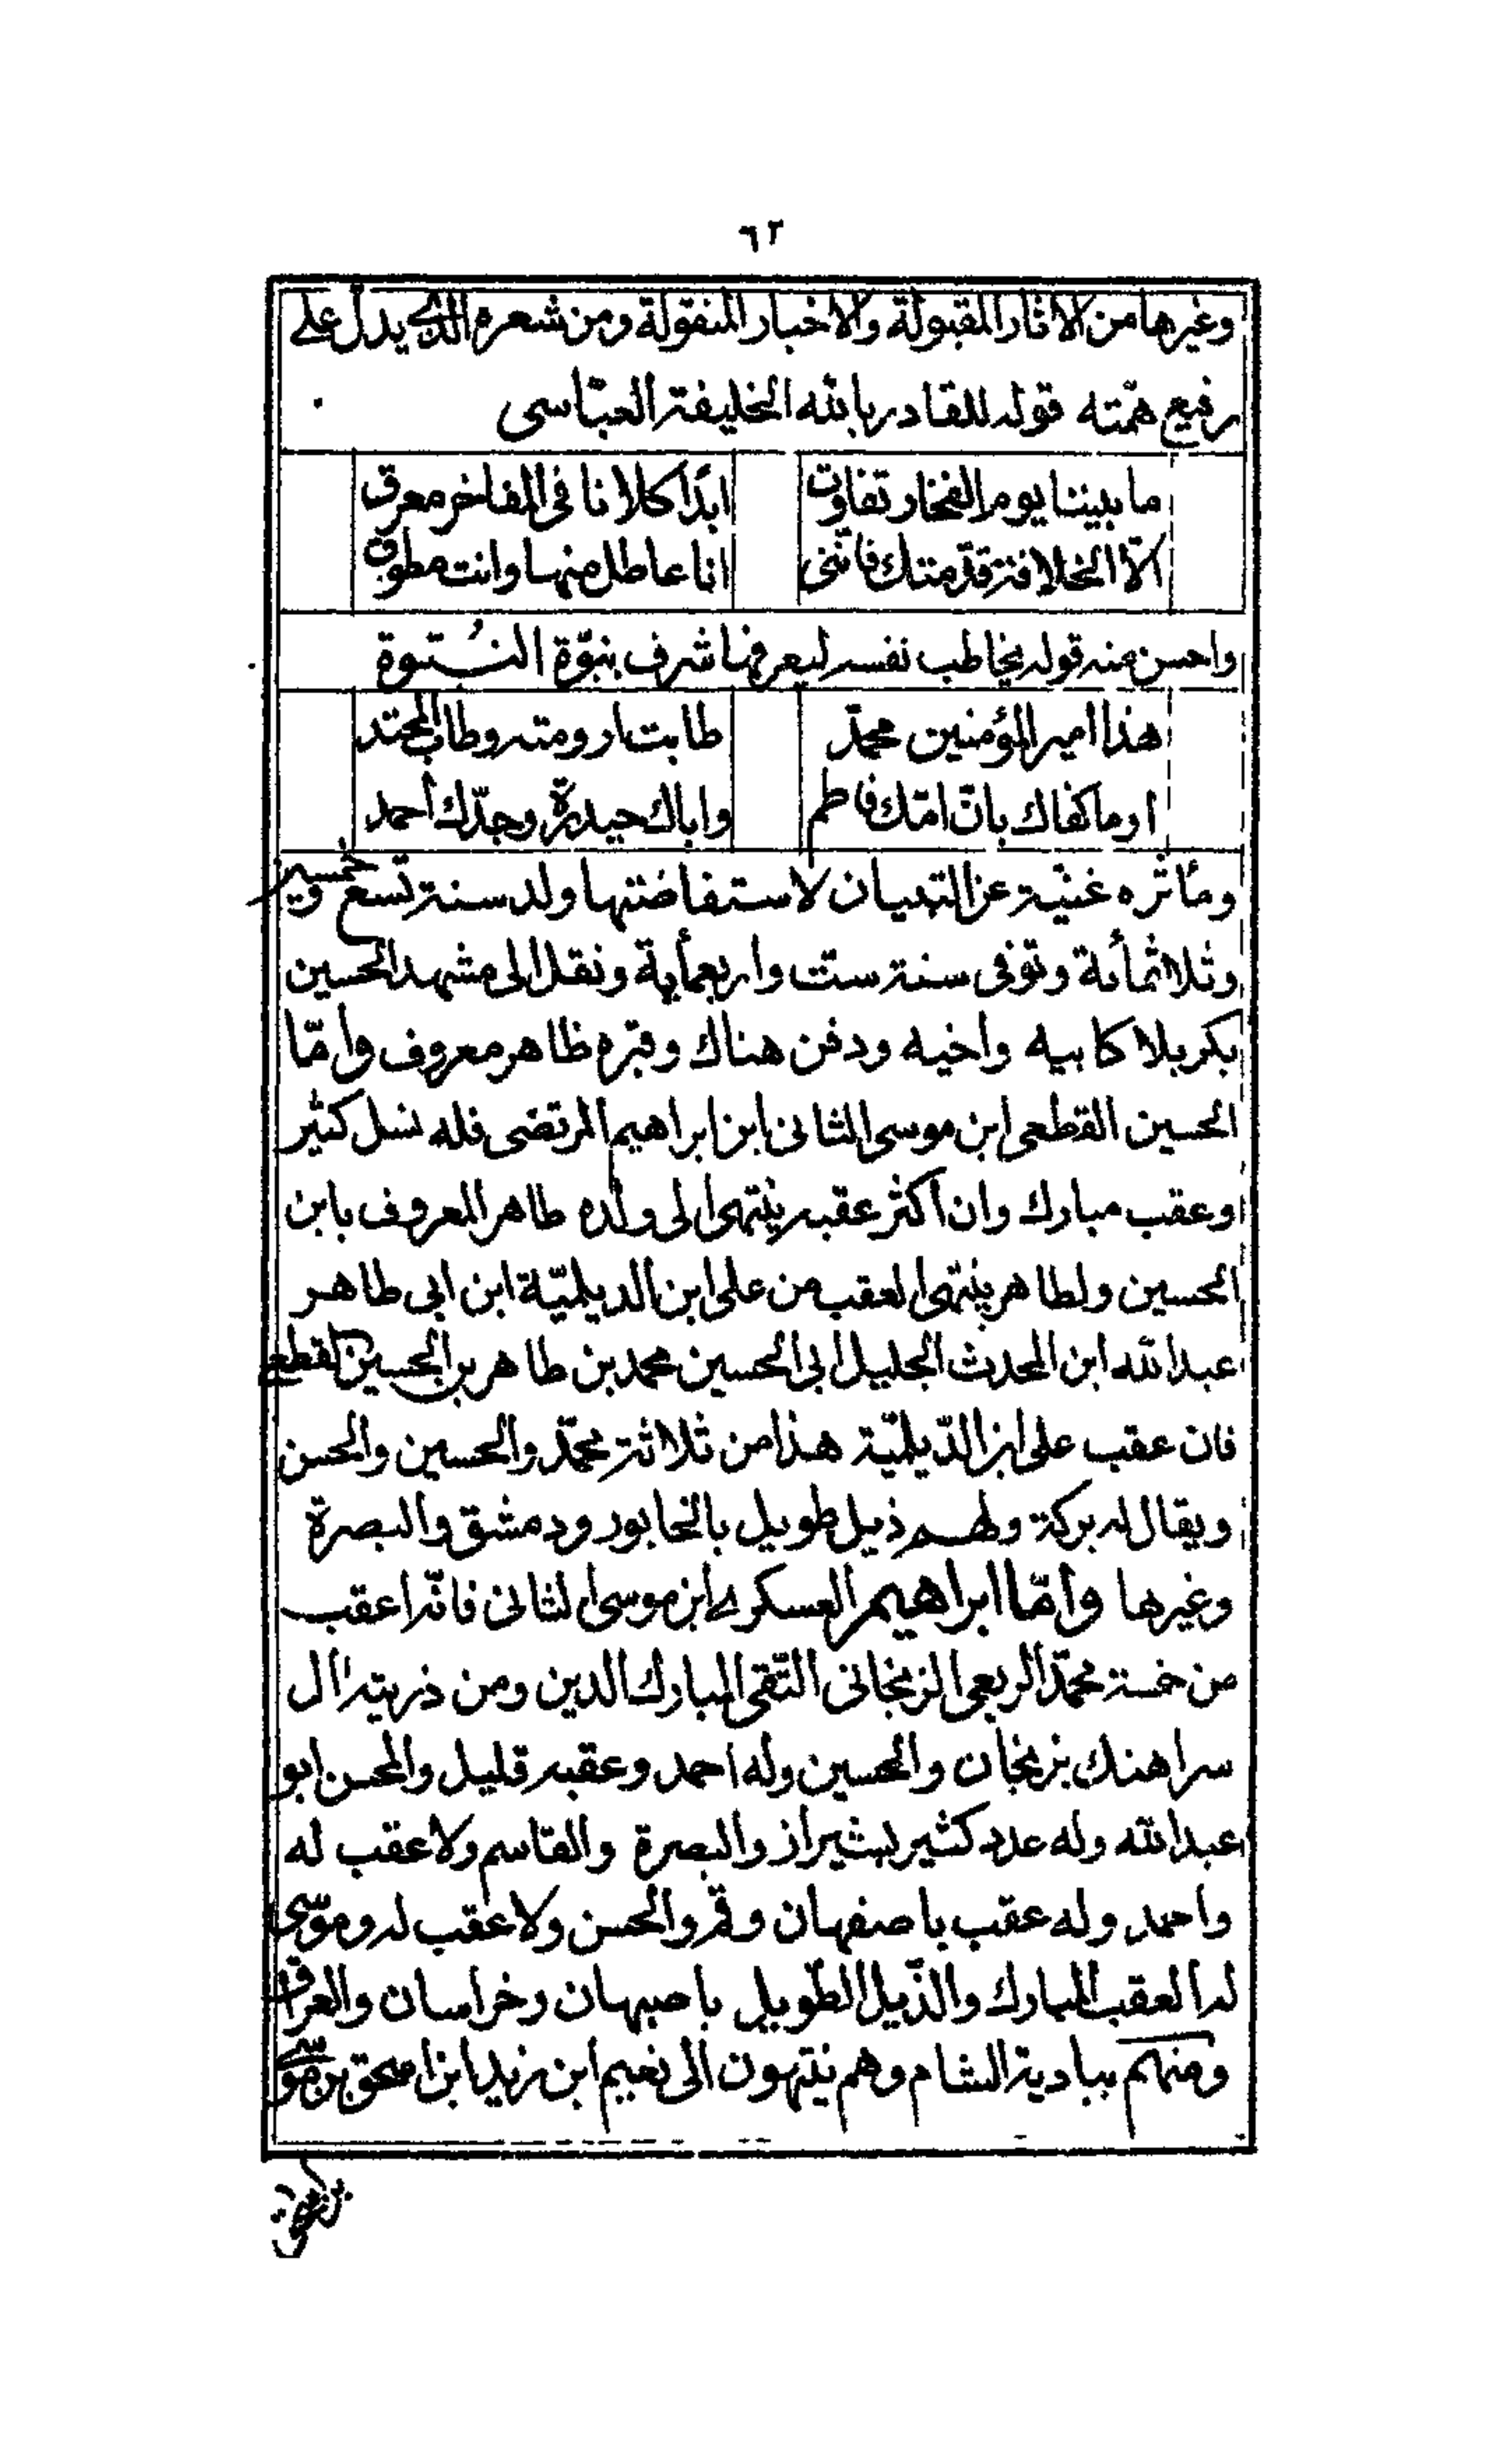 ٦٢
وغيرها من الاثار المقبولة والاخبار المنقولة ومن شعره الذى يدل على
رفيع همّته قوله للقادر بالله الخليفة العبّاسى
ما بيننا يوم الفخار تفاوت ابدًا كلانا فى المفاخر معرق
الاّ الخلافة قدّمتك فانّنى انا عاطل منها وانت مطوق
واحسن منه قوله يخاطب نفسه ليعرفها شرف بنوّة النُبوة
هذا امير المؤمنين محمدّ طابت ارومته وطاب المحتد
او ما كفاك بانّ امّك فاطم واباك حيدرة وجدّك أحمد
ومأثره غنيّة عن التبيان لاستفاضتها ولد سنة تسع وخمسين
وثلاثمأئة وتوفى سنة ستت واربعمأية ونقل الى مشهد الحسين
بكربلا كابيه واخيه ودفن هناك وقبره ظاهر معروف وأمّا
الحسين القطعى ابن موسى الثانى ابن ابراهيم المرتضى فله نسل كثير
وعقب مبارك وان اكثر عقبه ينتهى الى ولده طاهر المعروف بابن
الحسين ولطاهر ينتهى العقب من على ابن الديلميّة ابن ابى طاهر
عبدالله ابن المحدث الجليل ابى الحسين محمد بن طاهر بن الحسين القطعى
فان عقب على ابن الدّيلميّة هذا من ثلاثة محمّد والحسين والحسن
ويقال له بركة ولهم ذيل طويل بالخابور ودمشق والبصرة
وغيرها وامّا ابراهيم العسكرى ابن موسى الثانى فانّه اعقب
من خمسة محمّد الربعى الزنجانى التّقى المبارك الدين ومن ذريته ال
سراهنك بزنجان والحسين وله احمد وعقبه قليل والمحسن ابو
عبدالله وله عدد كثير بشيراز والبصرة والقاسم ولا عقب له
واحمد وله عقب باصفهان وقم والحسن ولا عقب له وموسى
له العقب المبارك والذّيل الطّويل باصبهان وخراسان والعراق
ومنهم ببادية الشام وهم ينتهون الى نعيم ابن زيد ابن اسحق بن موسى